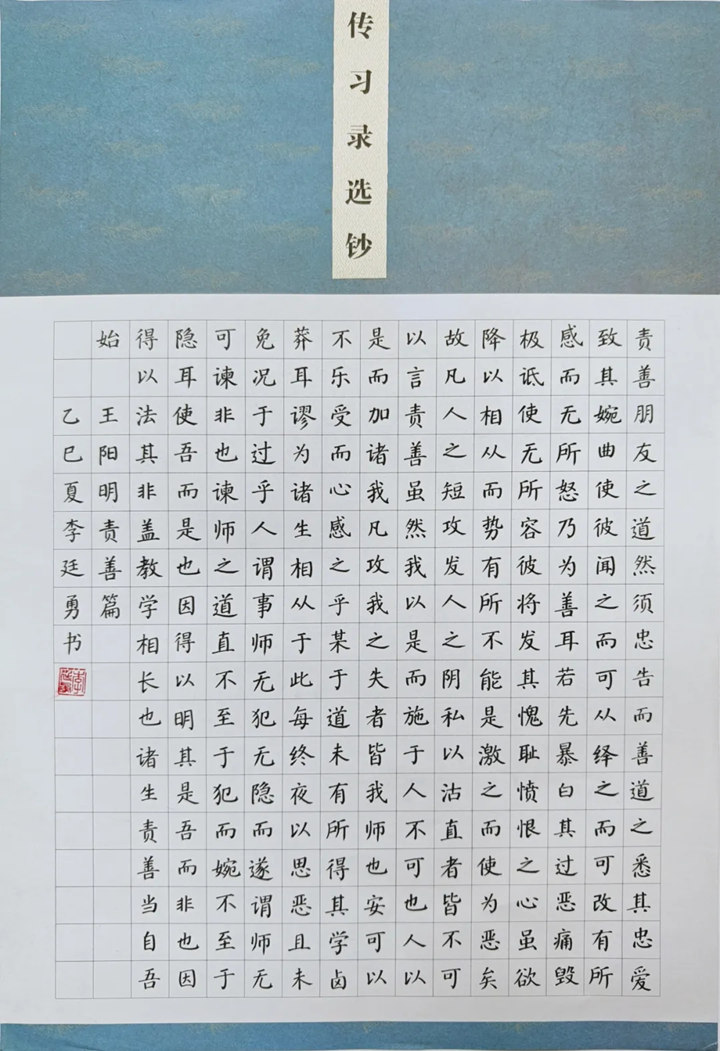 传习录选钞
责善朋友之道然须忠告而善道之悉其忠爱
致其婉曲使彼闻之而可从绎之而可改有所
感而无所怒乃为善耳若先暴白其过恶痛毁
极诋使无所容彼将发其愧耻愤恨之心虽欲
降以相从而势有所不能是激之而使为恶矣
故凡人之短攻发人之阴私以沽直者皆不可
以言责善虽然我以是而施于人不可也人以
是而加诸我凡攻我之失者皆我师也安可以
不乐受而心感之乎某于道未有所得其学卤
莽耳谬为诸生相从于此每终夜以思恶且未
免况于过乎人谓事师无犯无隐而遂谓师无
可谏非也谏师之道直不至于犯而婉不至于
隐耳使吾而是也因得以明其是吾而非也因
得以法其非盖教学相长也诸生责善当自吾
始 王阳明责善篇
乙巳夏李廷勇书